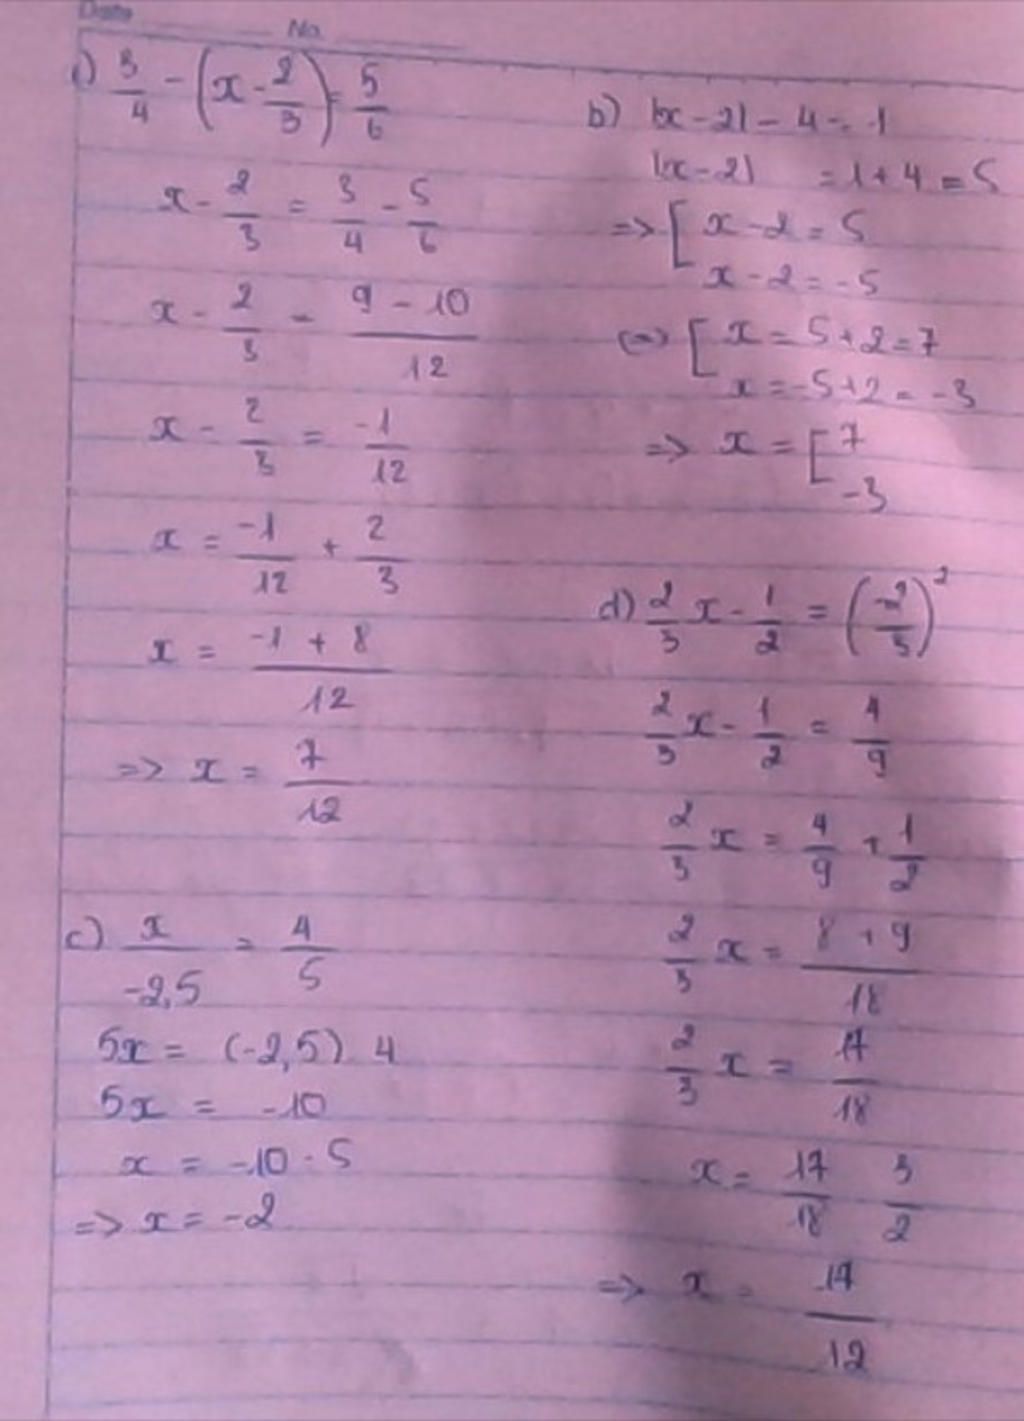 Date No.
a) 3/4 - (x - 2/3) = 5/6
x - 2/3 = 3/4 - 5/6
x - 2/3 = (9 - 10)/12
x - 2/3 = -1/12
x = -1/12 + 2/3
x = (-1 + 8)/12
=> x = 7/12
b) |x - 2| - 4 = 1
|x - 2| = 1 + 4 = 5
=> [ x - 2 = 5
x - 2 = -5
(=> [ x = 5 + 2 = 7
x = -5 + 2 = -3
=> x = [ 7
-3
c) x/-2,5 = 4/5
5x = (-2,5) . 4
5x = -10
x = -10 : 5
=> x = -2
d) 2/3 x - 1/2 = (-2/3)²
2/3 x - 1/2 = 4/9
2/3 x = 4/9 + 1/2
2/3 x = (8 + 9)/18
2/3 x = 17/18
x = 17/18 . 3/2
=> x = 17/12